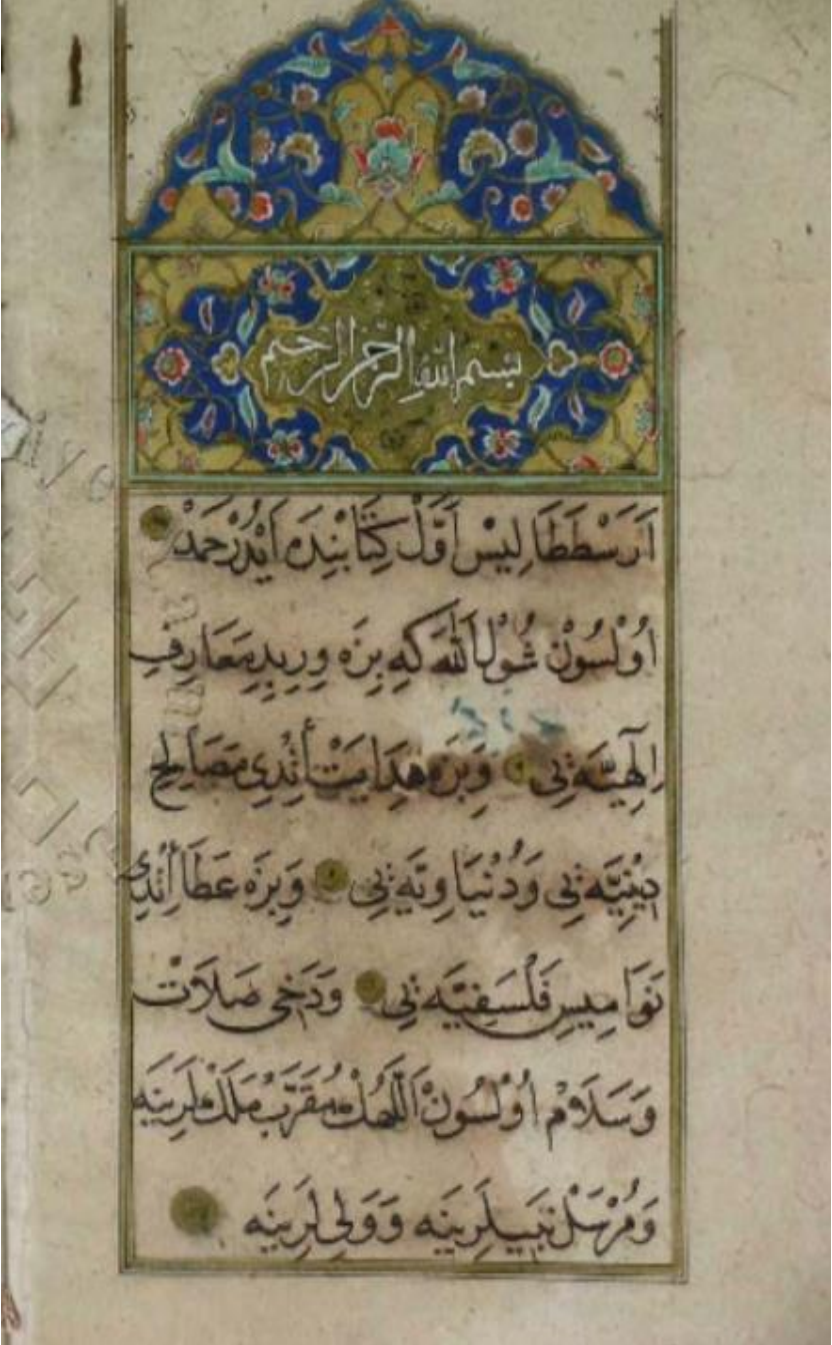 بسم الله الرحمن الرحيم
اَرَسْطَطَالِيسْ اَوَّلْ كِتَابْنِدَه اَيْدُرْ حَمْدْ
اُوْلْسُونْ شُولْ اَللّٰهَ كَه بِزَه وِرِيدِ مَعَارِفِ
اِلٰهِيَّه نِى وَبِزَه هِدَايَتْ أَتْدِى مَصَالِحِ
دِينِيَّه نِى وَدُنْيَاوِيَّه نِى وَبِزَه عَطَا أَتْدِى
نَوَامِيسِ فَلْسَفِيَّه نِى وَدَخِى صَلَاتْ
وَسَلَامْ اُوْلْسُونْ اَللّٰهُكْ مُقَرَّبْ مَلَكْلَرِينَه
وَمُرْسَلْ نَبِيلَرِينَه وَوَلِى لَرِينَه